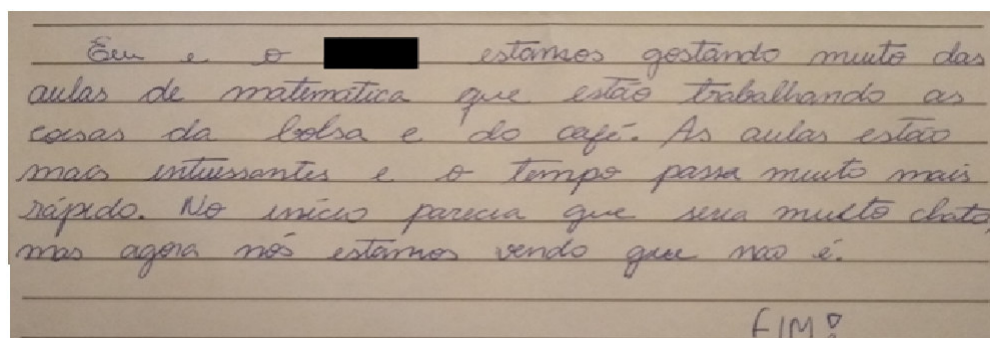 Eu e o estamos gostando muito das
aulas de matemática que estão trabalhando as
coisas da bolsa e do café. As aulas estão
mais interessantes e o tempo passa muito mais
rápido. No início parecia que seria muito chato,
mas agora nós estamos vendo que não é.
FIM!